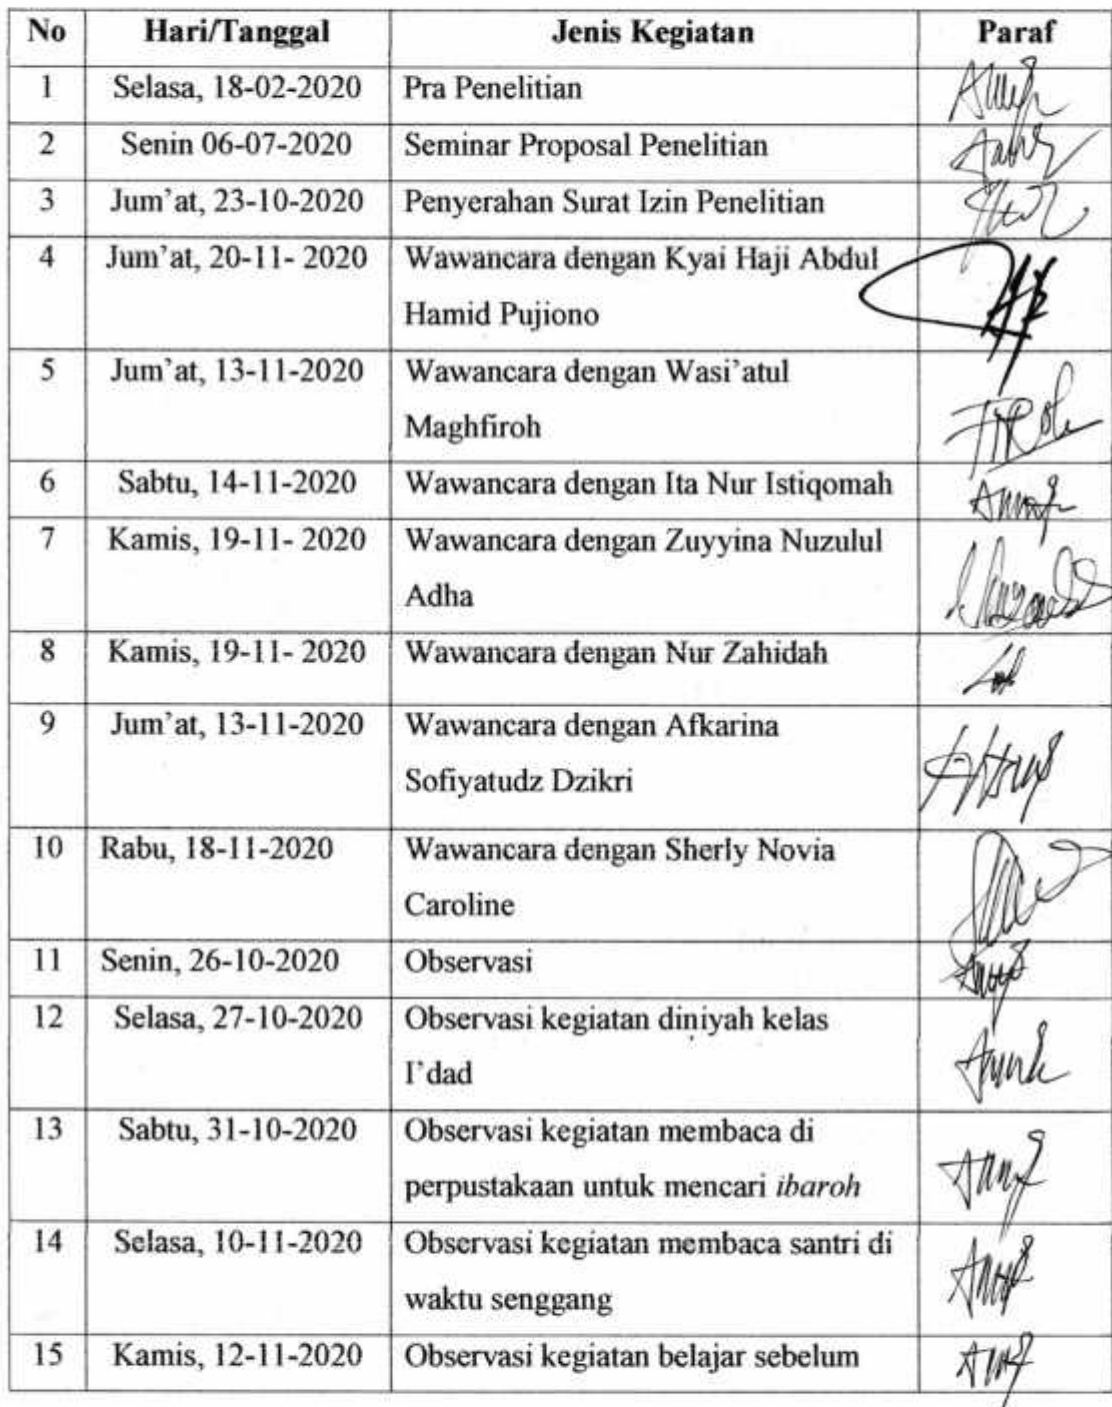 No Hari/Tanggal Jenis Kegiatan Paraf
1 Selasa, 18-02-2020 Pra Penelitian
2 Senin 06-07-2020 Seminar Proposal Penelitian
3 Jum'at, 23-10-2020 Penyerahan Surat Izin Penelitian
4 Jum'at, 20-11- 2020 Wawancara dengan Kyai Haji Abdul
Hamid Pujiono
5 Jum'at, 13-11-2020 Wawancara dengan Wasi'atul
Maghfiroh
6 Sabtu, 14-11-2020 Wawancara dengan Ita Nur Istiqomah
7 Kamis, 19-11- 2020 Wawancara dengan Zuyyina Nuzulul
Adha
8 Kamis, 19-11- 2020 Wawancara dengan Nur Zahidah
9 Jum'at, 13-11-2020 Wawancara dengan Afkarina
Sofiyatudz Dzikri
10 Rabu, 18-11-2020 Wawancara dengan Sherly Novia
Caroline
11 Senin, 26-10-2020 Observasi
12 Selasa, 27-10-2020 Observasi kegiatan diniyah kelas
I'dad
13 Sabtu, 31-10-2020 Observasi kegiatan membaca di
perpustakaan untuk mencari ibaroh
14 Selasa, 10-11-2020 Observasi kegiatan membaca santri di
waktu senggang
15 Kamis, 12-11-2020 Observasi kegiatan belajar sebelum